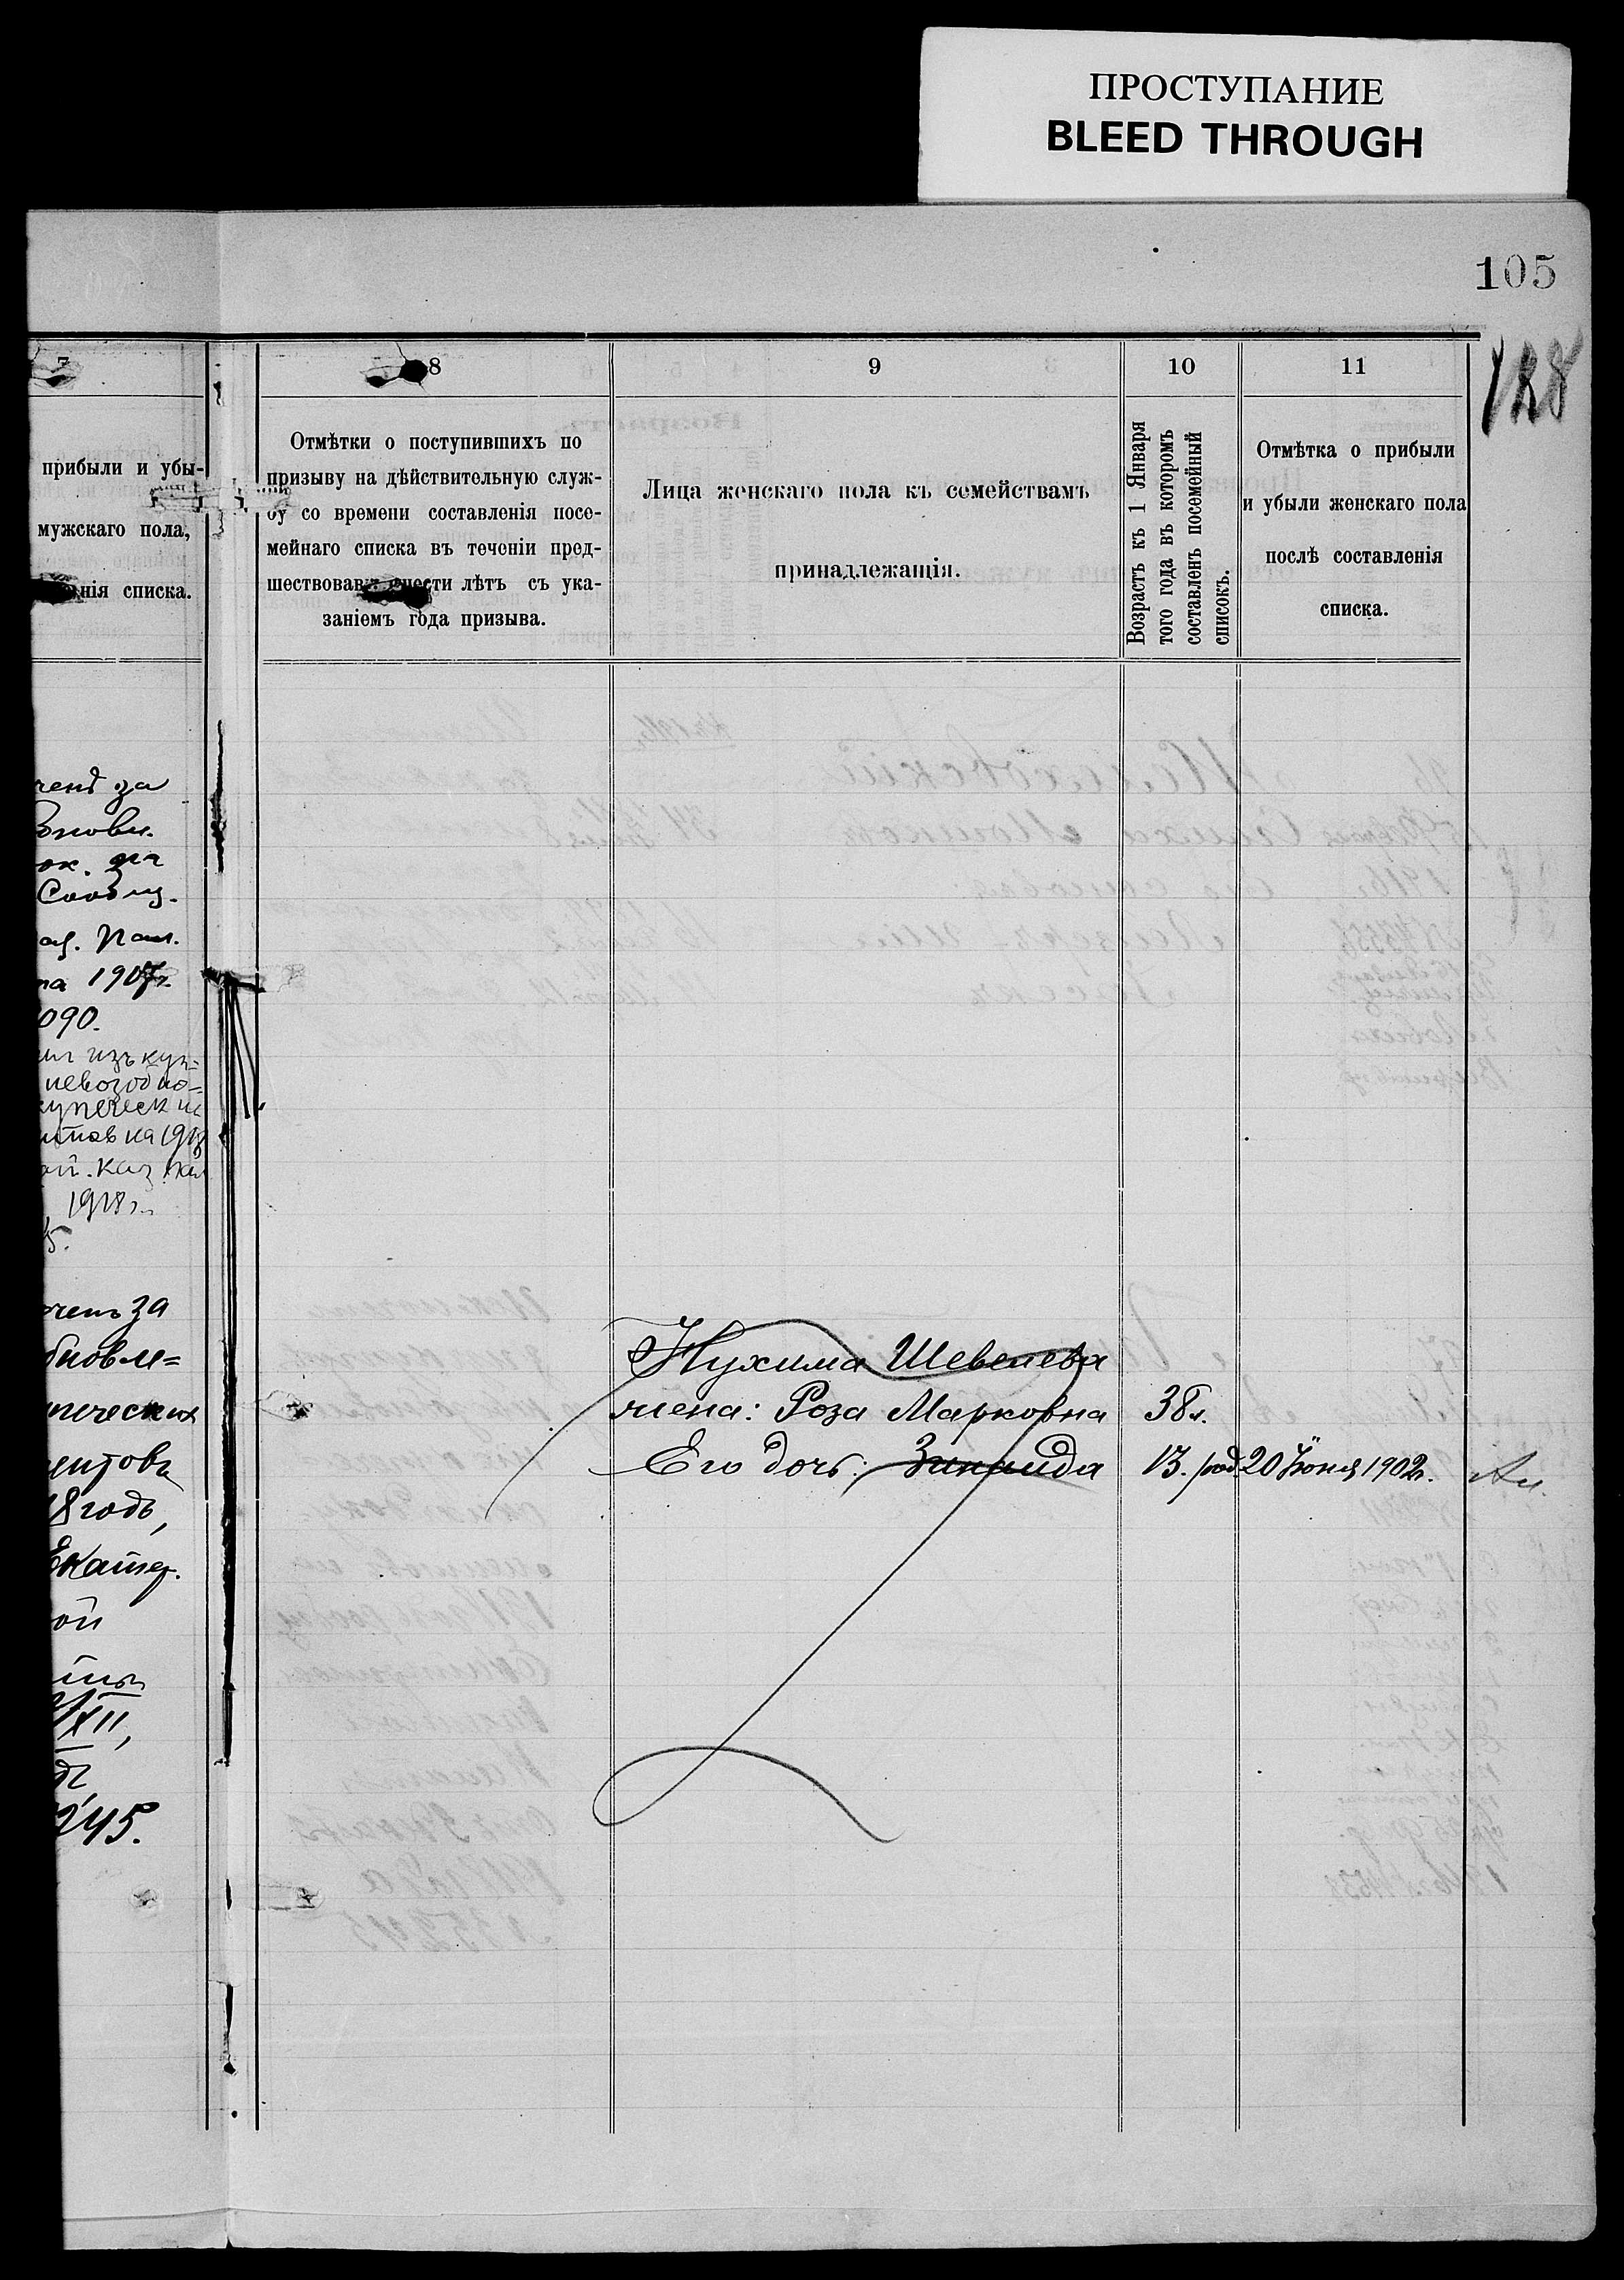 ПРОСТУПАНИЕ
BLEED THROUGH
105
128
7
прибыли и убы-
мужскаго пола,
нія списка.
8
Отмѣтки о поступившихъ по
призыву на дѣйствительную служ-
бу со времени составленія посе-
мейнаго списка въ теченіи пред-
шествовав шести лѣтъ съ ука-
заніемъ года призыва.
9
Лица женскаго пола къ семействамъ
принадлежащія.
10
Возрастъ къ 1 Января
того года въ которомъ
составленъ посемейный
списокъ.
11
Отмѣтка о прибыли
и убыли женскаго пола
послѣ составленія
списка.
ченъ за
на 1907г.
090.
изъ куп=
невозобно-
на 1918
1918г.
5.
за
бновле=
ческих
ентовъ
18 годъ,
Екатер.
ой
XII,
245.
Нухима Шевелева
жена: Роза Марковна 38л.
Его дочь: Зинаида 13. род 20 Іюня 1902г.